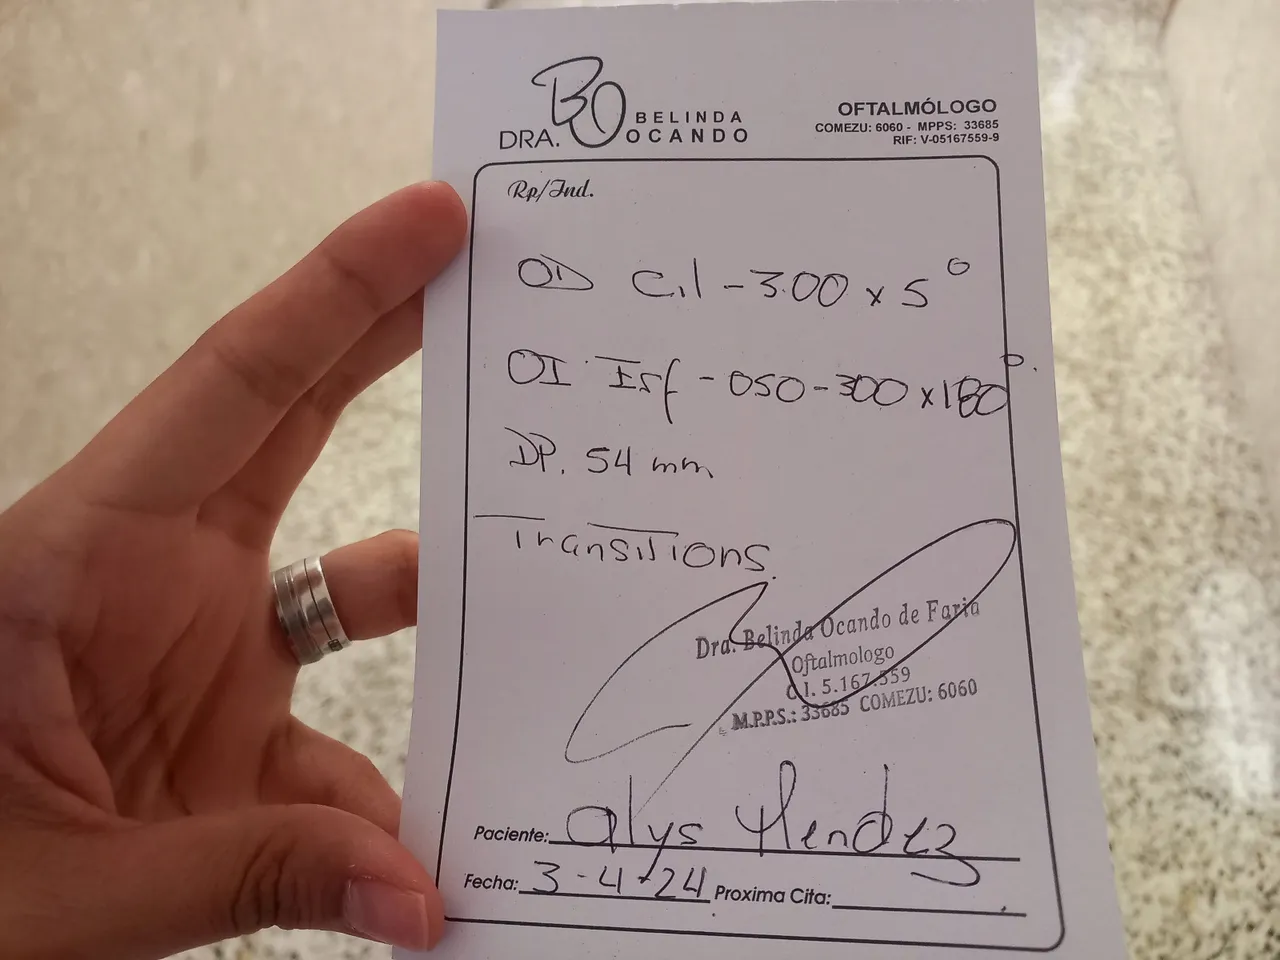 BO
DRA. BELINDA OCANDO
OFTALMÓLOGO
COMEZU: 6060 - MPPS: 33685
RIF: V-05167559-9
Rp/Ind.
OD Cil -3.00 x 5°
OI Esf -050-300 x 180°.
DP. 54 mm
Transitions.
Dra. Belinda Ocando de Faria
Oftalmologo
C.I. 5.167.559
M.P.P.S.: 33685 COMEZU: 6060
Paciente: alys Mendez
Fecha: 3-4-24 Proxima Cita: